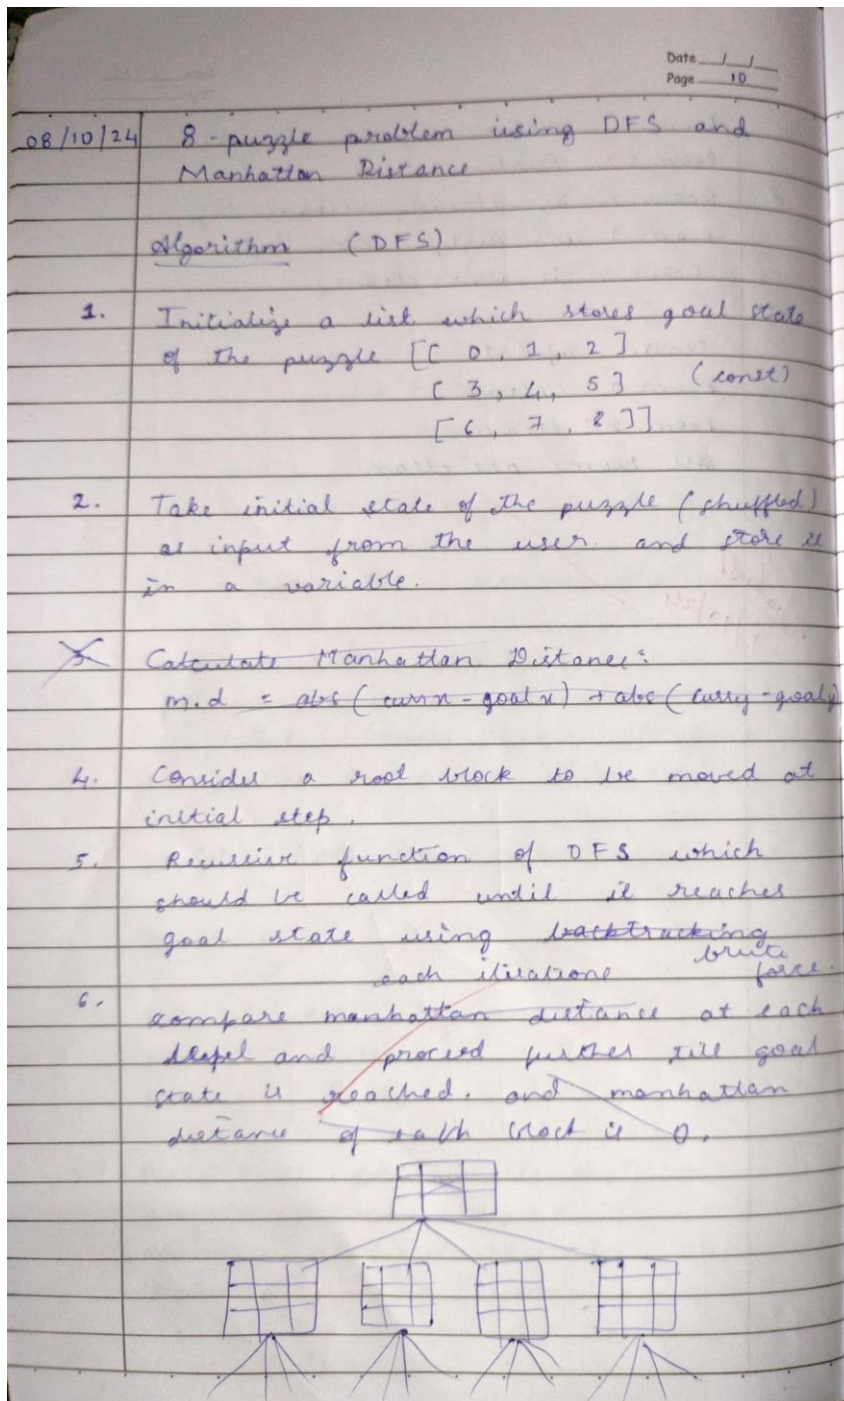 Date __/__/__
Page 10
08/10/24 8-puzzle problem using DFS and
Manhattan Distance
Algorithm (DFS)
1. Initialize a list which stores goal state
of the puzzle [[ 0, 1, 2 ]
[ 3, 4, 5 ] (const)
[ 6, 7, 8 ]]
2. Take initial state of the puzzle (shuffled)
as input from the user. and store it
in a variable.
3. Calculate Manhattan Distance:
m.d = abs ( currx - goalx) + abs ( curry - goaly)
4. Consider a root block to be moved at
initial step.
5. Recursive function of DFS which
should be called until it reaches
goal state using backtracking
brute
each iterations force.
6. compare manhattan distance at each
and proceed further till goal
state is reached. and manhattan
distance of each block is 0.